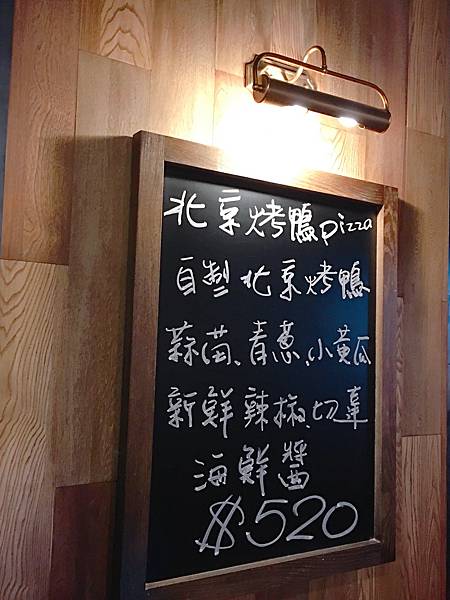 北京烤鴨pizza
自製北京烤鴨
蒜苗、青蔥、小黃瓜
新鮮辣椒、切達
海鮮醬
$520